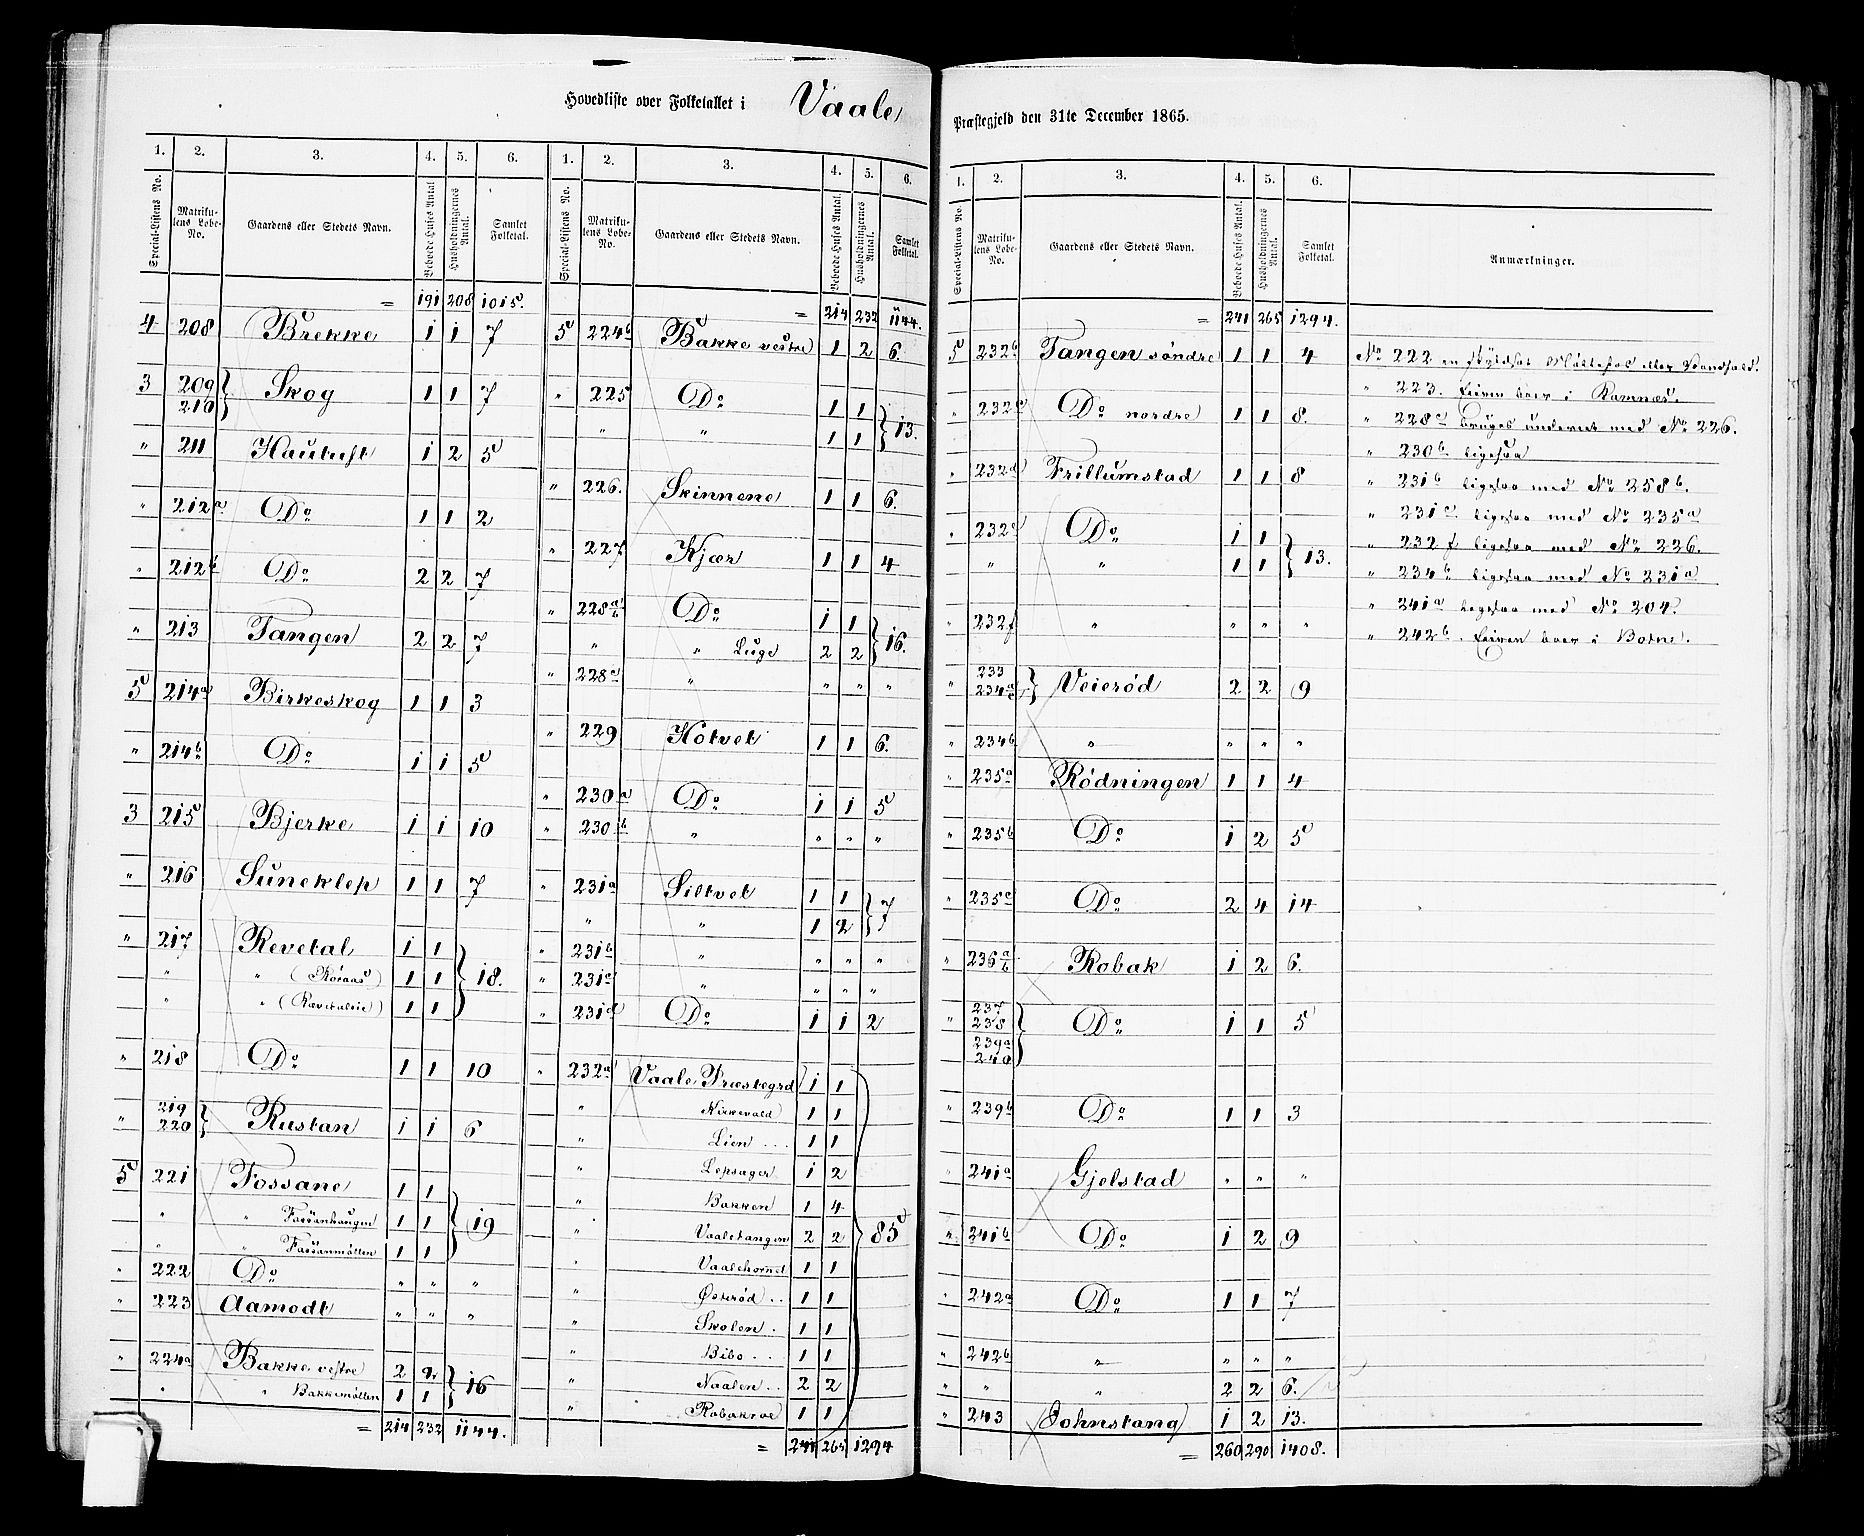 Hovedliste over Folketallet i Vaale
Præstegjeld den 31te December 1865.
1. 2. 3. 4. 5. 6.
Special-Listens No. Matrikulens Løbe-No. Gaardens eller Stedets Navn. Beboede Huses Antal Husholdningernes Antal. Samlet Folketal.
= 191 208 1015.
4 208 Brekke 1 1 7
3 209 210 } Skog 1 1 7
" 211 Hautuft 1 2 5
" 212a Do 1 1 2
" 212b Do 2 2 7
" 213 Tangen 2 2 7
5 214a Birkeskog 1 1 3
" 214b Do 1 1 5
3 215 Bjerke 1 1 10
" 216 Suneklep 1 1 7
" 217 Revetal 1 1 } 18.
" " (Røraas) 1 1
" " (Rævetaleie) 1 1
" 218 Do 1 1 10
" 219 220 } Rustan 1 1 6
5 221 Fossane 1 1 } 19
" " Fossanhaugen 1 1
" " Fossanmøllen 1 1
" 222 Do " " "
" 223 Aamodt " " "
" 224a Bakke vestre 2 2 } 16
" " Bakkemøllen 1 1
= 214 232 1144.
1. 2. 3. 4. 5. 6.
Special-Listens No. Matrikulens Løbe-No. Gaardens eller Stedets Navn. Beboede Huses Antal. Husholdningernes Antal. Samlet Folketal.
= 214 232 1144.
5 224b Bakke vestre 1 2 6.
" 225 Do 1 1 } 13.
" " 1 1
" 226. Skinnene 1 1 6.
" 227 Kjær 1 1 4
" 228a b Do 1 1 } 16.
" " Luge 2 2
" 228a " " " "
" 229 Hotvet 1 1 6.
" 230a Do 1 1 5
" 230b " " " "
" 231a Siltvet 1 1 } 7
" " 1 2
" 231b " " " "
" 231c " " " "
" 231d Do 1 1 2
" 232a Vaale Præstegrd 1 1 } 85
" Kirkevold 1 1
" Lien ... 1 1
" Lepsager 1 2
" Bakken 1 4
" Vaaletangen 2 2
" Vaalehornet 1 1
" Østerød .. 1 1
" Skolen . 1 1
" Bibo .. 1 1
" Naalen .. 2 2
" Robakroe 1 1
= 241 265 1294
1. 2. 3. 4. 5. 6.
Special-Listens No. Matrikulens Løbe-No. Gaardens eller Stedets Navn. Beboede Huses Antal. Husholdningernes Antal. Samlet Folketal. Anmærkninger.
= 241 265 1294.
5 232b Tangen søndre 1 1 4
" 232c Do nordre 1 1 8.
" 232d Frillumstad 1 1 8
" 232e Do 1 1 } 13.
" " 1 1
" 232f " " " "
" 233 234a } Veierød 2 2 9
" 234b " " " "
" 235a Rødningen 1 1 4
" 235b Do 1 2 5
" 235c Do 2 4 14
" 236a b Robak 1 2 6.
" 237 238 239a 240 } Do 1 1 5
" 239b Do 1 1 3
" 241a Gjelstad " " "
" 241b Do 1 2 9
" 242a Do 1 1 7
" 242b " " " "
" " " 2 2 6.
" 243 Sohnstang 1 2 13.
= 260 290 1408.
No 222 en skyldsat Møllefos eller Vandfald.
" 223. Eieren boer i Ramnæs.
" 228a bruges underet med No 226.
" 230b. ligesaa
" 231b ligesaa med No 258b.
" 231c. ligesaa med No 235a
" 232f ligesaa med No 226.
" 234b ligesaa med No 231a
" 241a ligesaa med No 204.
" 242b. Eieren boer i Botne.